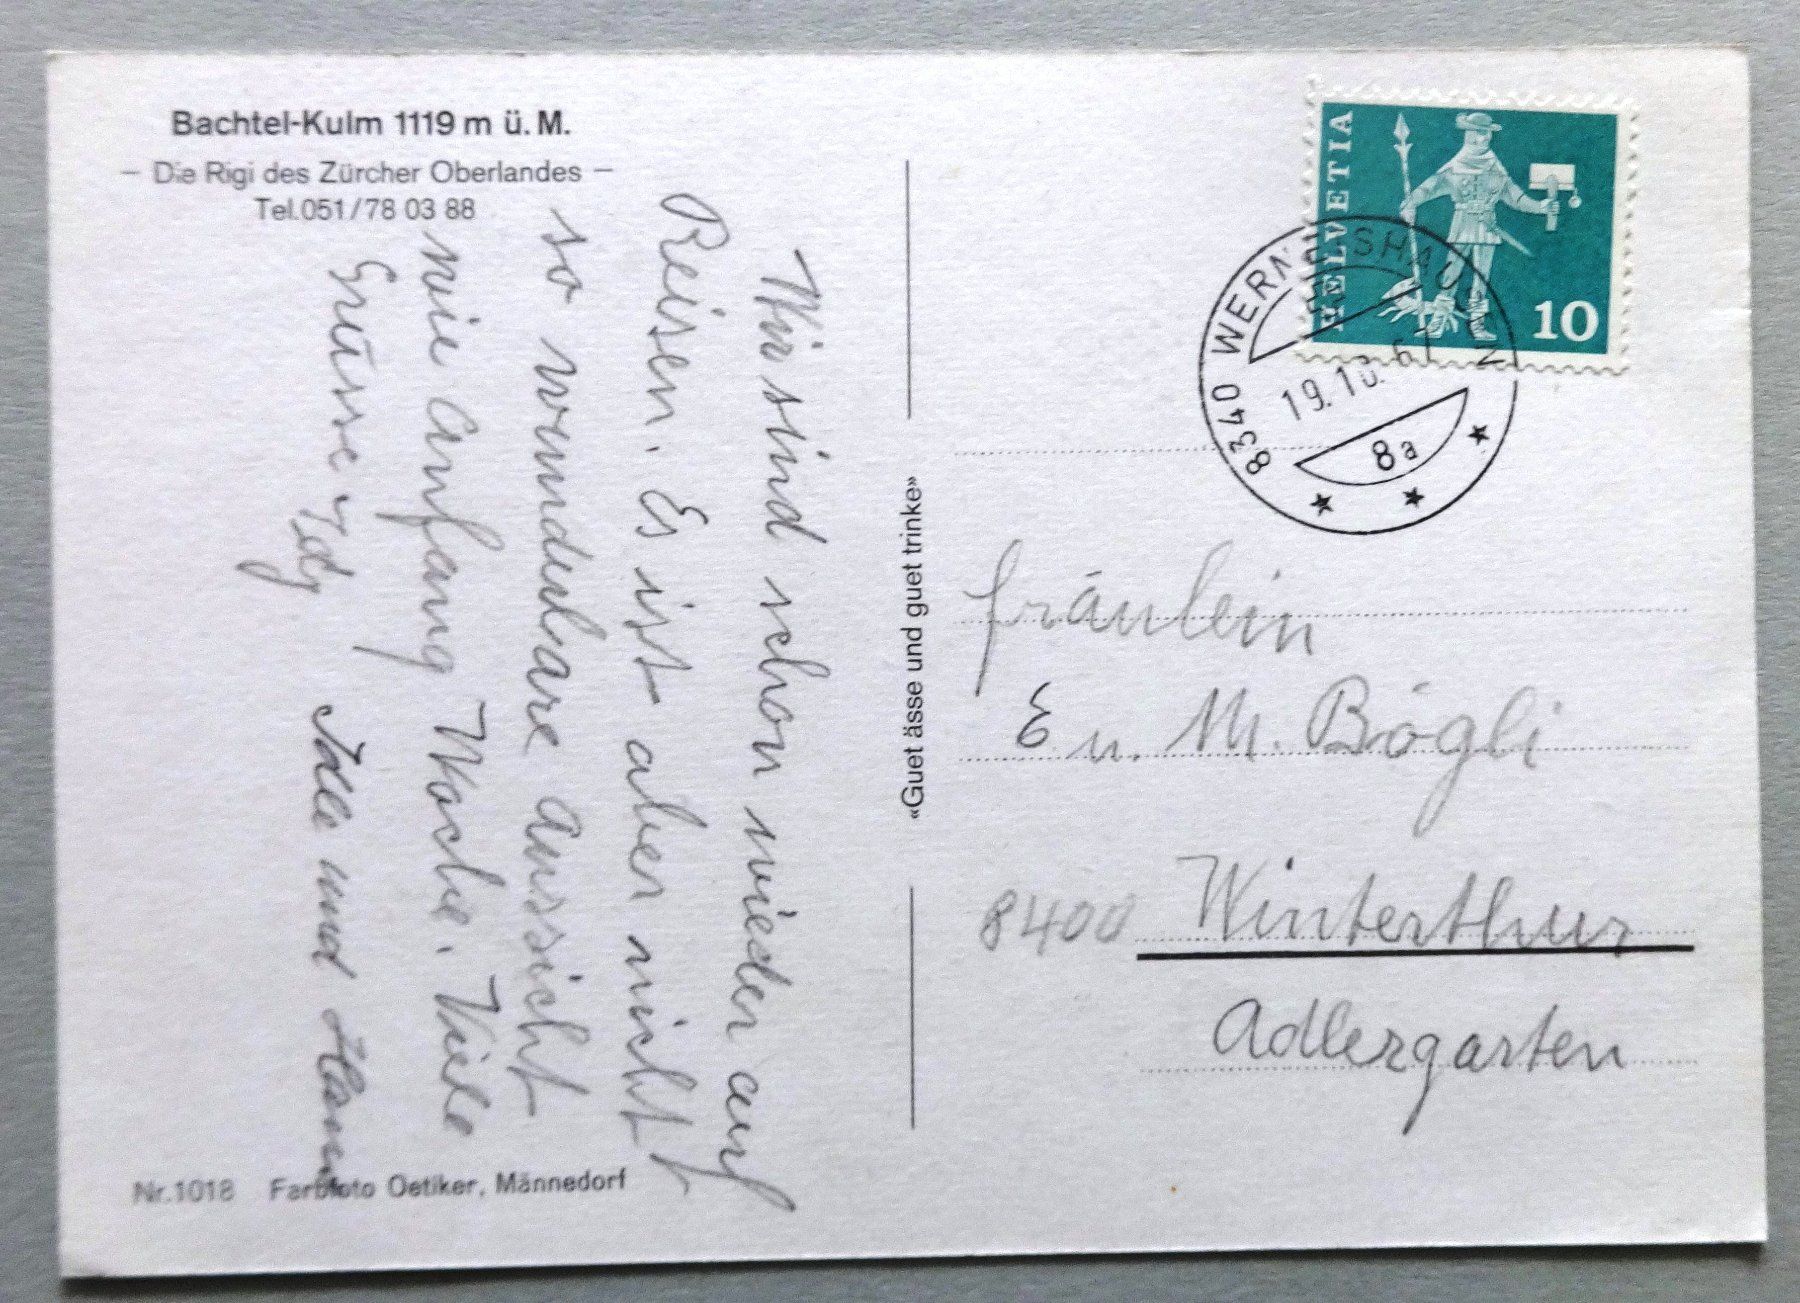 Bachtel-Kulm 1119 m ü. M.
– Die Rigi des Zürcher Oberlandes –
Tel. 051/78 03 88
Wir sind schon wieder auf
Reisen. Es ist aber nicht
so wunderbare Aussicht
wie Anfang Woche. Viele
Grüsse Idy,
Idle und Hans
Nr. 1018 Farbfoto Oetiker, Männedorf
«Guet ässe und guet trinke»
HELVETIA
10
8340 WERNETSHAUSEN
19.10.67
8a
Fräulein
E u. M. Bögli
8400 Winterthur
Adlergarten